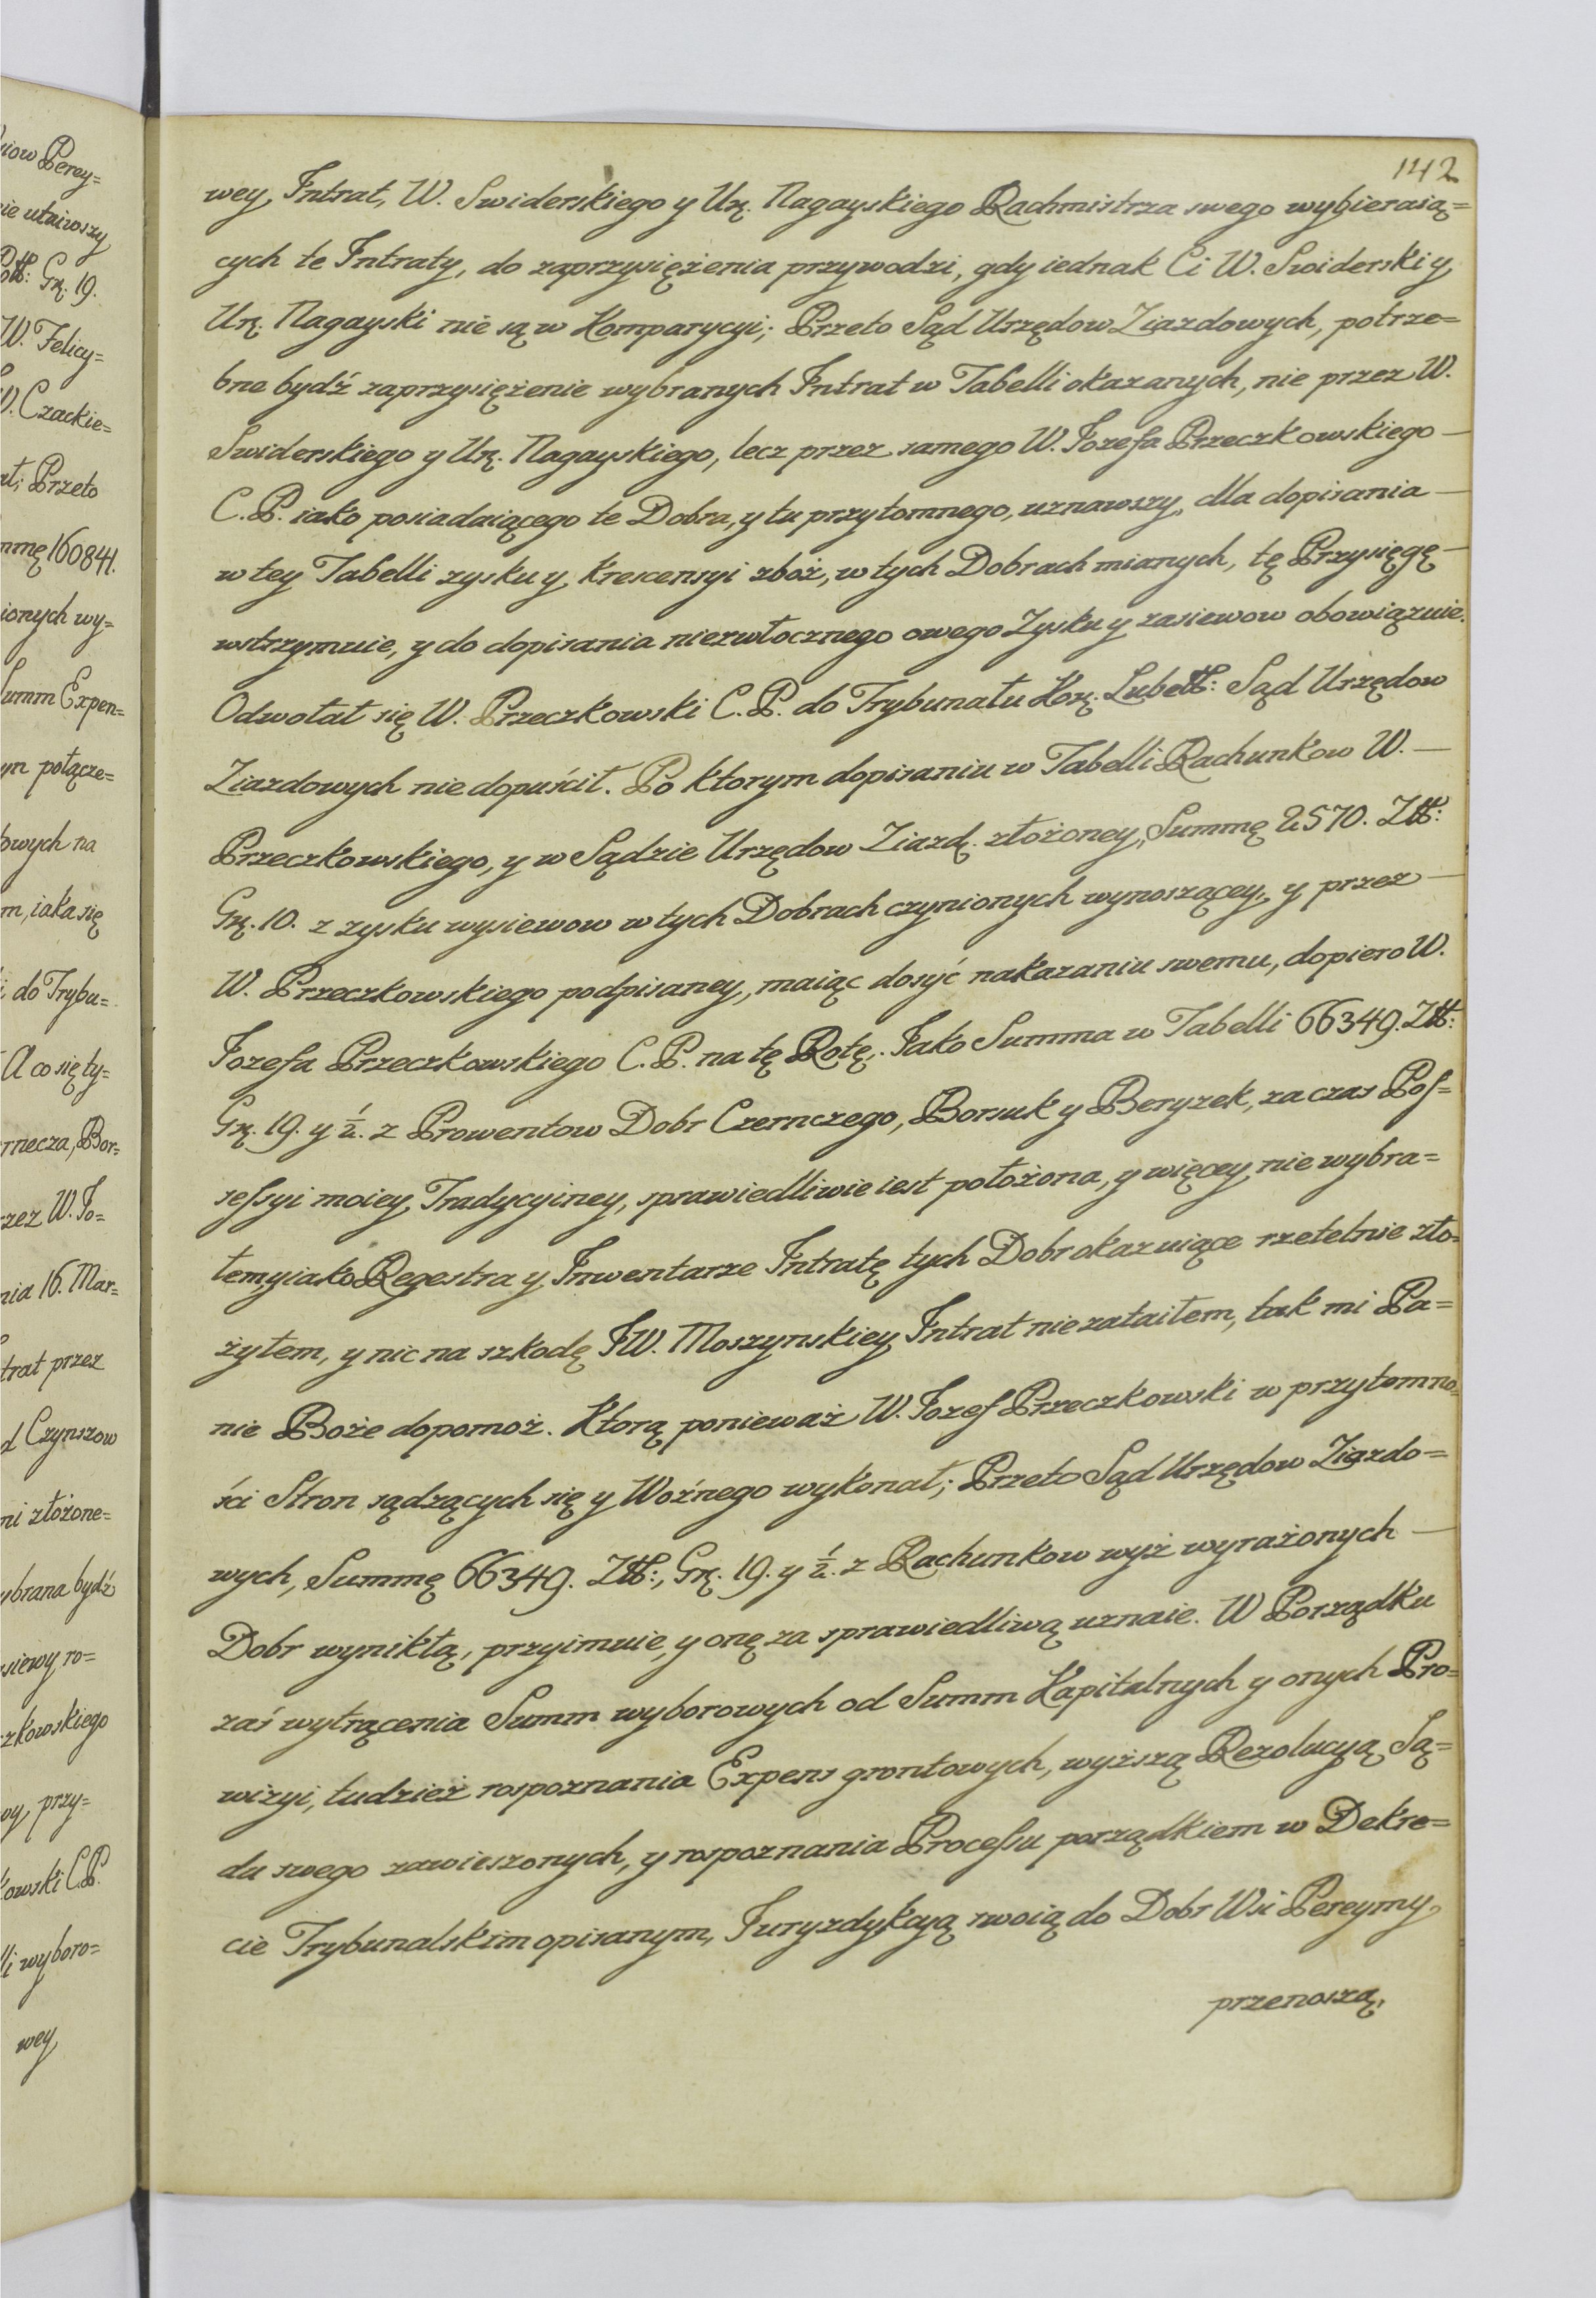 142
wey Intrat, W. Swiderskiego y Ur. Nagayskiego Rachmistrza swego wybieraią=
cych te Intraty, do zaprzysiężenia przywodzi, gdy iednak Ci W. Swiderski y
Ur. Nagayski nie są w Komparycyi; Przeto Sąd Urzędow Ziazdowych, potrze=
bne bydź zaprzysiężenie wybranych Intrat w Tabelli okazanych, nie przez W.
Swiderskiego y Ur. Nagayskiego, lecz przez samego W. Jozefa Przeczkowskiego —
C. P. iako posiadaiącego te Dobra, y tu przytomnego, uznawszy, dla dopisania —
w tey Tabelli zysku y Krescensyi zboż, w tych Dobrach mianych, tę Przysięgę —
wstrzymuie, y do dopisania niezwłocznego owego Zysku y zasiewow obowiązuie.
Odwołał się W. Przeczkowski C. P. do Trybunału Kor. Lubel: Sąd Urzędow
Ziazdowych nie dopuścił. Po ktorym dopisaniu w Tabelli Rachunkow W. —
Przeczkowskiego, y w Sądzie Urzędow Ziazd. złożoney, Summę 2570. Zł:
Gr. 10. z zysku wysiewow w tych Dobrach czynionych wynoszącey, y przez —
W. Przeczkowskiego podpisaney, maiąc dosyć nakazaniu swemu, dopiero W.
Jozefa Przeczkowskiego C. P. na tę Rotę. Jako Summa w Tabelli 66349. Zł:
Gr. 19. y ½. z Prowentow Dobr Czernczego, Borsuk y Beryzek, za czas Pos=
sessyi moiey Tradycyiney, sprawiedliwie iest położona, y więcey nie wybra=
łem, y iako Regestra y Inwentarze Intratę tych Dobr okazuiące rzetelnie zło=
żyłem, y nic na szkodę JW. Moszynskiey Intrat nie zataiłem, tak mi Pa=
nie Boże dopomoż. Ktorą ponieważ W. Jozef Przeczkowski w przytomno=
ści Stron sądzących się y Woźnego wykonał; Przeto Sąd Urzędow Ziazdo=
wych, Summę 66349. Zł:, Gr. 19. y ½. z Rachunkow wyż wyrażonych —
Dobr wynikłą, przyimuie, y onę za sprawiedliwą uznaie. W Porządku
zaś wytrącenia Summ wyborowych od Summ Kapitalnych y onych Pro=
wizyi, tudzież rospoznania Expens grontowych, wyższą Rezolucyą Są=
du swego zawieszonych, y rospoznania Processu porządkiem w Dekre=
cie Trybunalskim opisanym, Juryzdykcyą swoią do Dobr Wsi Pereymy
przenoszą,